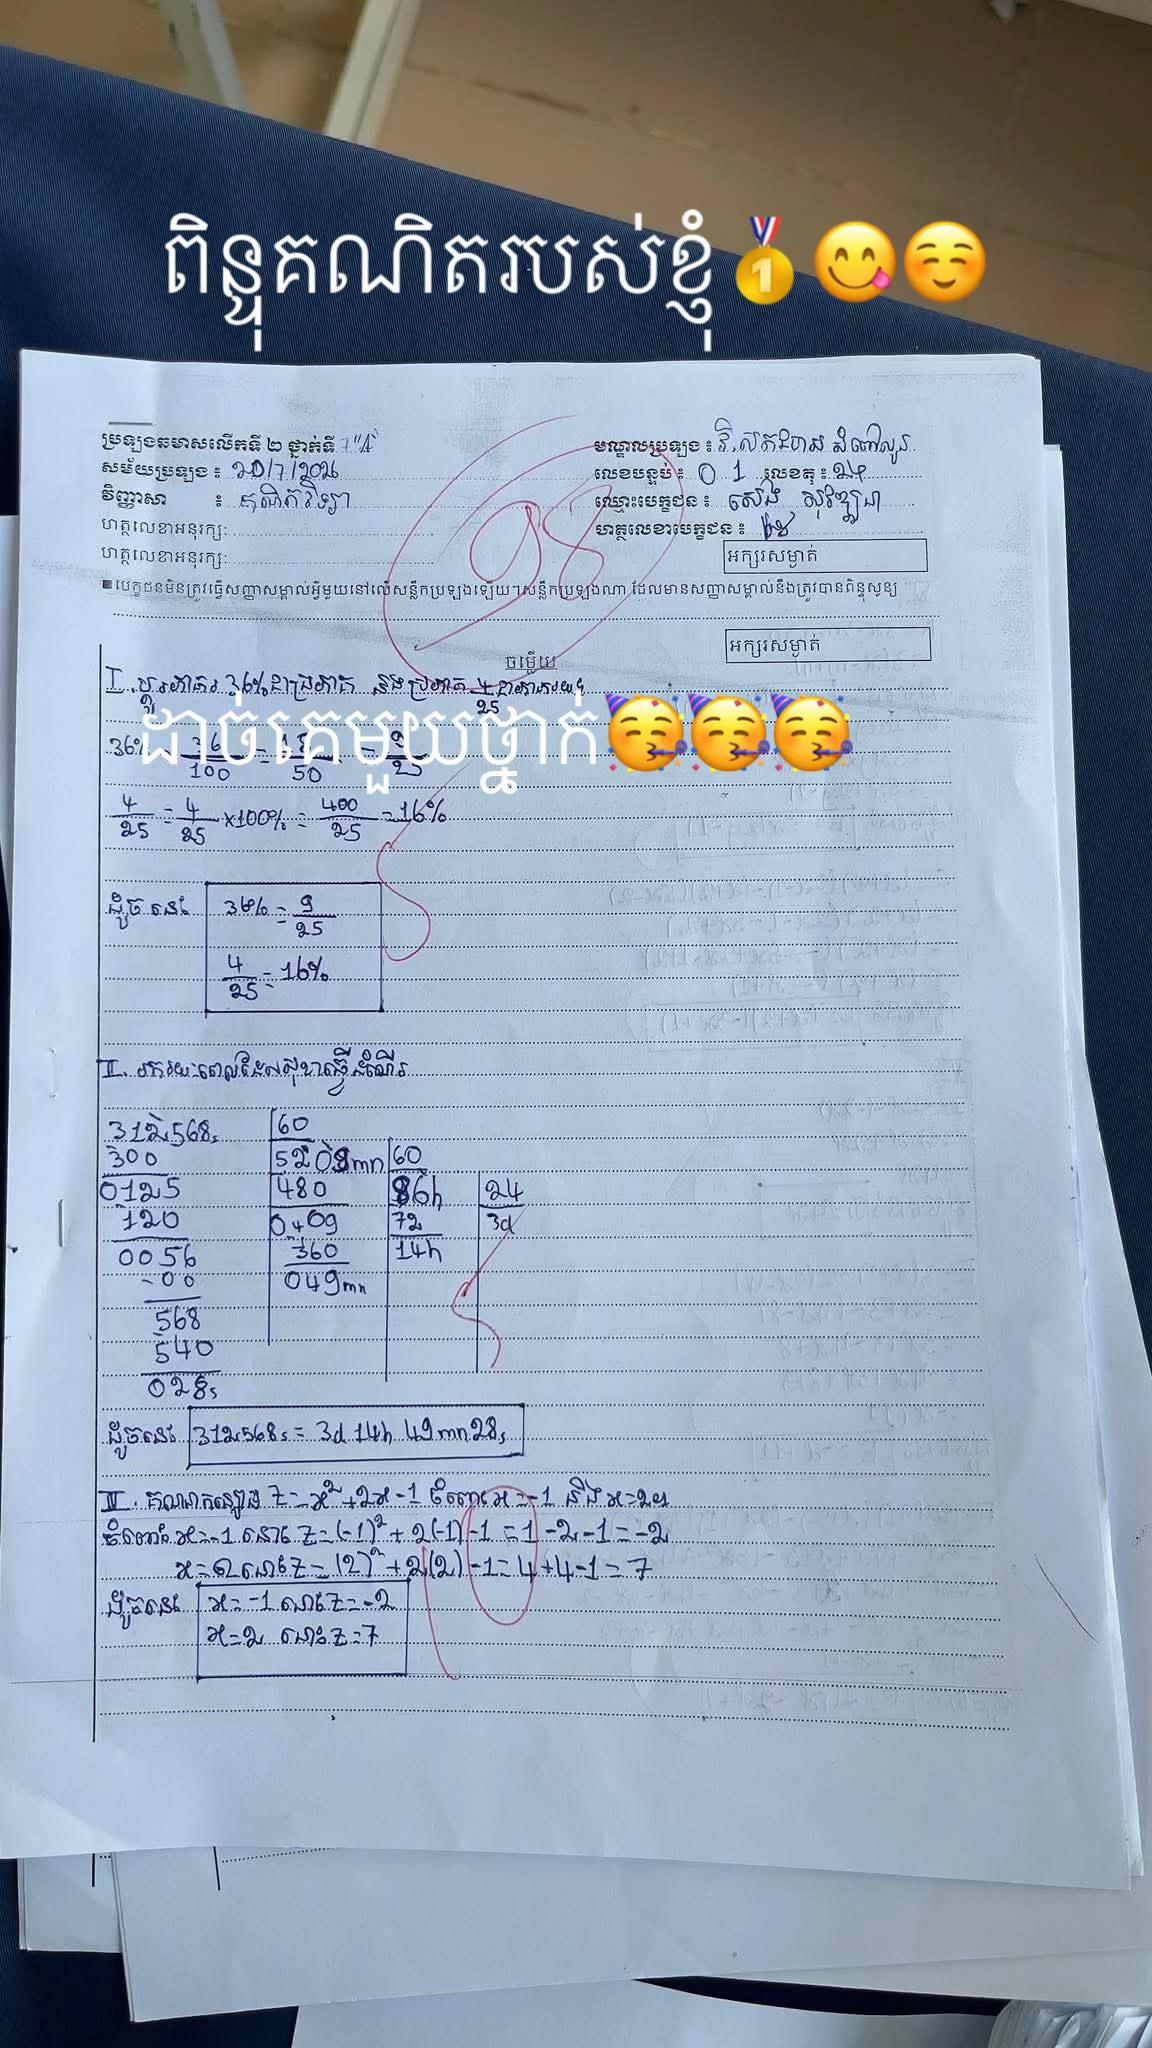 ពិន្ទុគណិតរបស់ខ្ញុំ🥇😋☺️
ប្រឡងឆមាសលើកទី ២ ថ្នាក់ទី 7"A"
មណ្ឌលប្រឡង ៖ វិ.
សម័យប្រឡង ៖ 20/7/2026
លេខបន្ទប់ ៖ 01 លេខតុ ៖ 24
វិញ្ញាសា ៖ គណិតវិទ្យា
ឈ្មោះបេក្ខជន ៖ សេង
ហត្ថលេខាអនុរក្ស:
ហត្ថលេខាបេក្ខជន ៖
ហត្ថលេខាអនុរក្ស:
98
អក្សរសម្ងាត់
■ បេក្ខជនមិនត្រូវធ្វើសញ្ញាសម្គាល់អ្វីមួយនៅលើសន្លឹកប្រឡងឡើយ។សន្លឹកប្រឡងណា ដែលមានសញ្ញាសម្គាល់នឹងត្រូវបានពិន្ទុសូន្យ
អក្សរសម្ងាត់
ចម្លើយ
I. ប្តូរភាគរយ 36% ជាប្រភាគ និងប្រភាគ 4/25 ជាភាគរយ
ដាច់គេមួយថ្នាក់🥳🥳🥳
36% = 36/100 = 18/50 = 9/25
4/25 = 4/25 ×100% = 400/25 = 16%
ដូចនេះ 36% = 9/25
4/25 = 16%
II. រករយៈពេលដែលសុខាធ្វើដំណើរ
312568s 60
300 5209mn 60
0125 480 86h 24
120 0409 72 3d
0056 360 14h
-00 049mn
568
540
028s
ដូចនេះ 312568s = 3d 14h 49mn 28s
III. គណនាកន្សោម Z = x²+2x-1 ចំពោះ x=-1 និង x=2
ចំពោះ x=-1 នោះ Z = (-1)² + 2(-1) -1 = 1 -2 -1 = -2
x=2 នោះ Z = (2)² + 2(2) -1 = 4+4-1 = 7
ដូចនេះ x=-1 នោះ Z=-2
x=2 នោះ Z=7